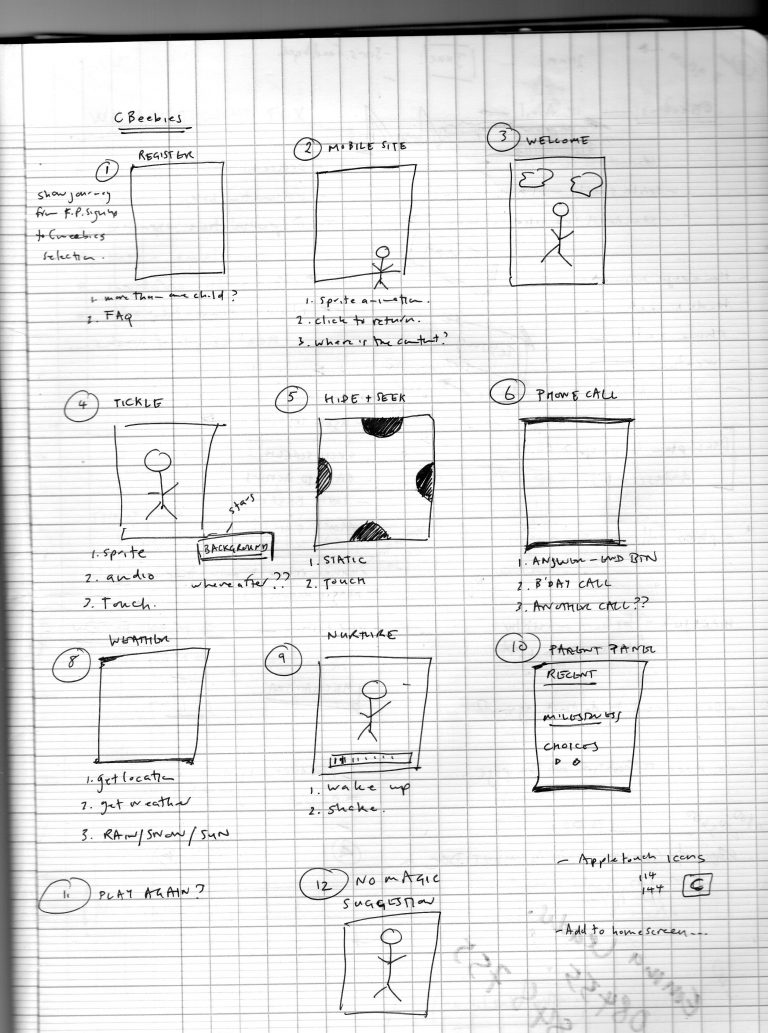 CBeebies
1 REGISTER
show journey
from F.P. Signup
to Cbeebies
selection.
1. more than one child?
2. FAQ
2 MOBILE SITE
1. Sprite animation.
2. click to return.
3. where is the content?
3 WELCOME
4 TICKLE
stars
BACKGROUND
1. sprite
2. audio
3. Touch.
where after??
5 HIDE + SEEK
1. STATIC
2. Touch
6 PHONE CALL
1. ANSWER - END BTN
2. B'DAY CALL
3. ANOTHER CALL??
8 WEATHER
1. get location
2. get weather
3. RAIN/SNOW/SUN
9 NURTURE
1. wake up
2. shake.
10 PARENT PANEL
RECENT
MILESTONES
CHOICES
11 PLAY AGAIN?
12 NO MAGIC
SUGGESTION
- Apple touch icons
114
144
C
- Add to homescreen...